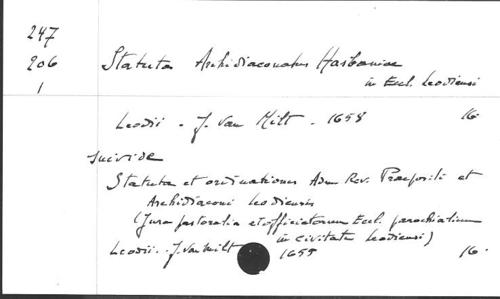 247
206
1
Statuta Archidiaconatus Hasbaniae
in Eccl. Leodiensi
Leodii - J. Van Milt - 1658 16-
suivi de
Statuta et ordinationes Adm Rev. Praepositi et
Archidiaconi Leodiensis
(Jura pastoralia et officiatorum Eccl. parochialium
in civitate Leodiensi)
Leodii - J. Van Milt 1659 16-